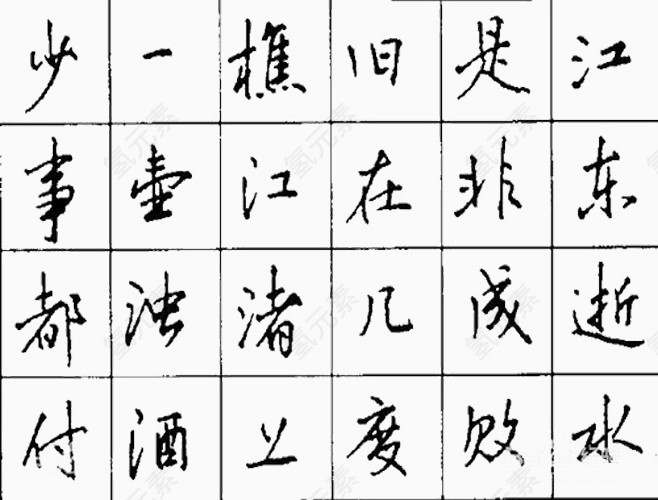 江东逝水
是非成败
旧在几度
樵江渚上
一壶浊酒
少事都付
氢元素